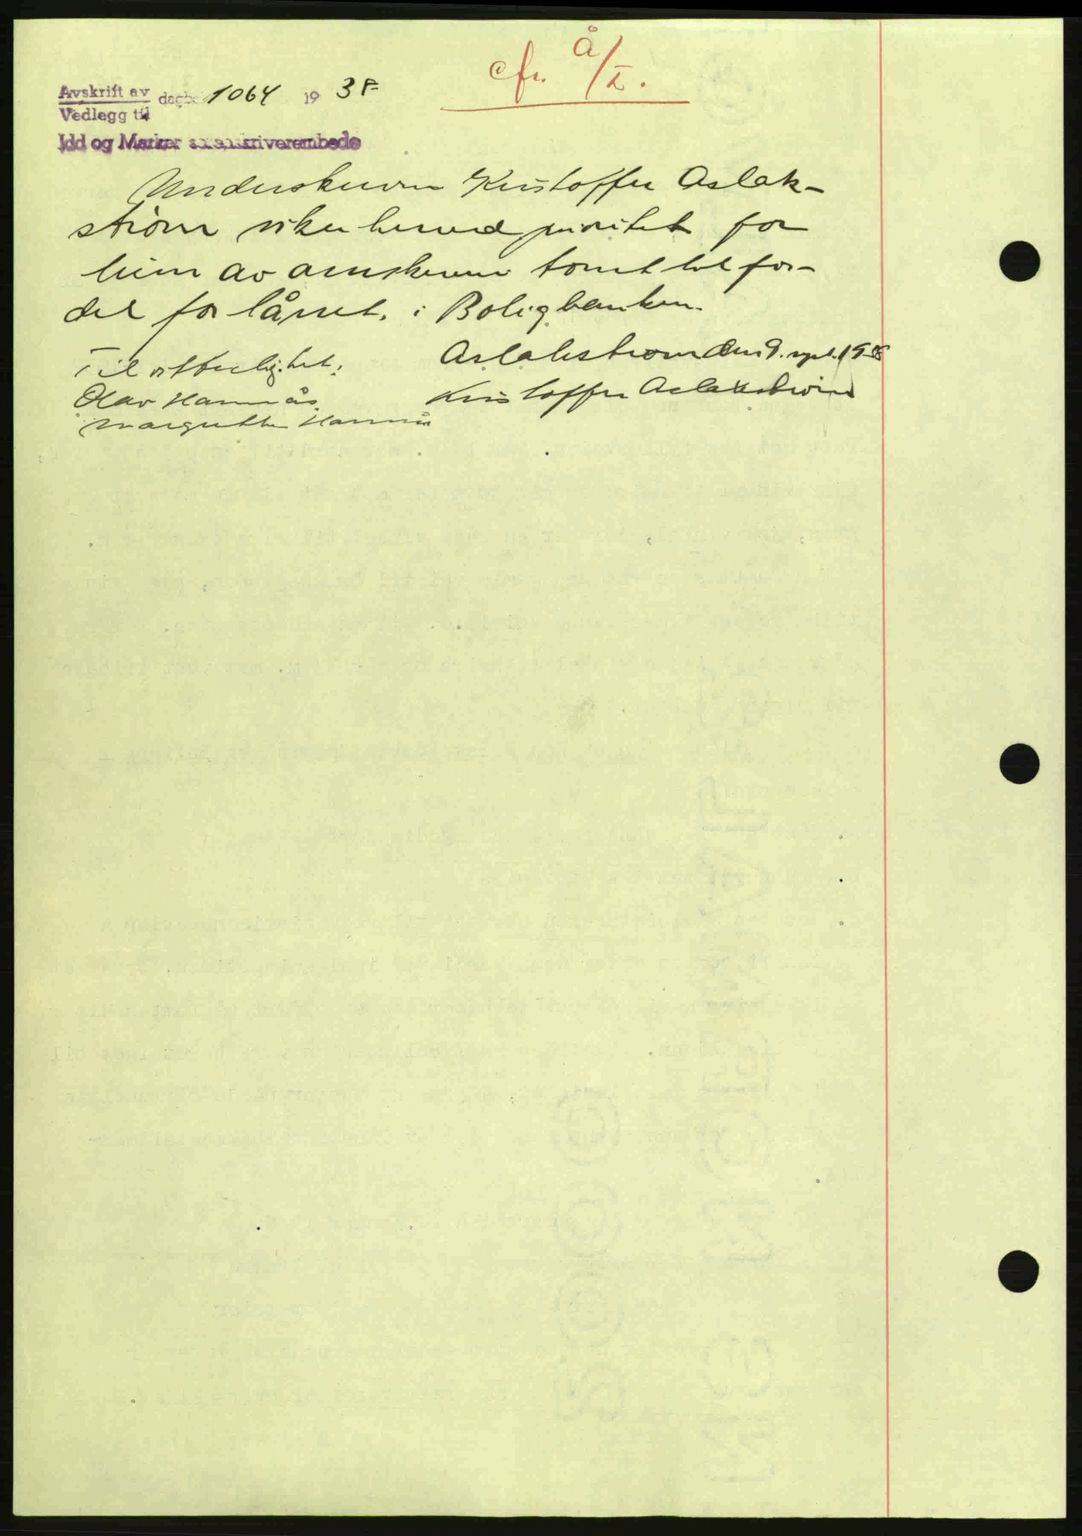 cfr. Å/I.
Avskrift av
Vedlegg til dagb. 1064 1938
Idd og Marker sorenskriverembede
Underskreven Kristoffer Aslak-
strøm viker herved prioritet for
min av tomt til for-
del for lånet i Boligbanken.
Aslakstrøm den 9. sept. 1938
Til vitterlighet:
Kristoffer Aslakstrøm
Olav Hannås
Margrethe Hannås